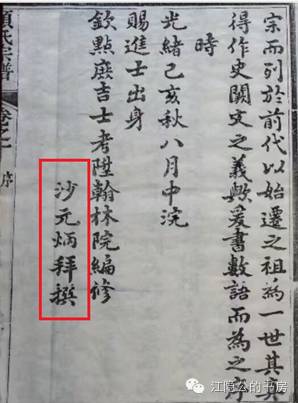 宗而列於前代以始遷之祖為一世其真
得作史闕文之義歟爰書數語而為之序
時
光緒己亥秋八月中浣
賜進士出身
欽點庶吉士考陞翰林院編修
沙元炳拜撰
氏宗譜
卷之一
序
江阴公的书房